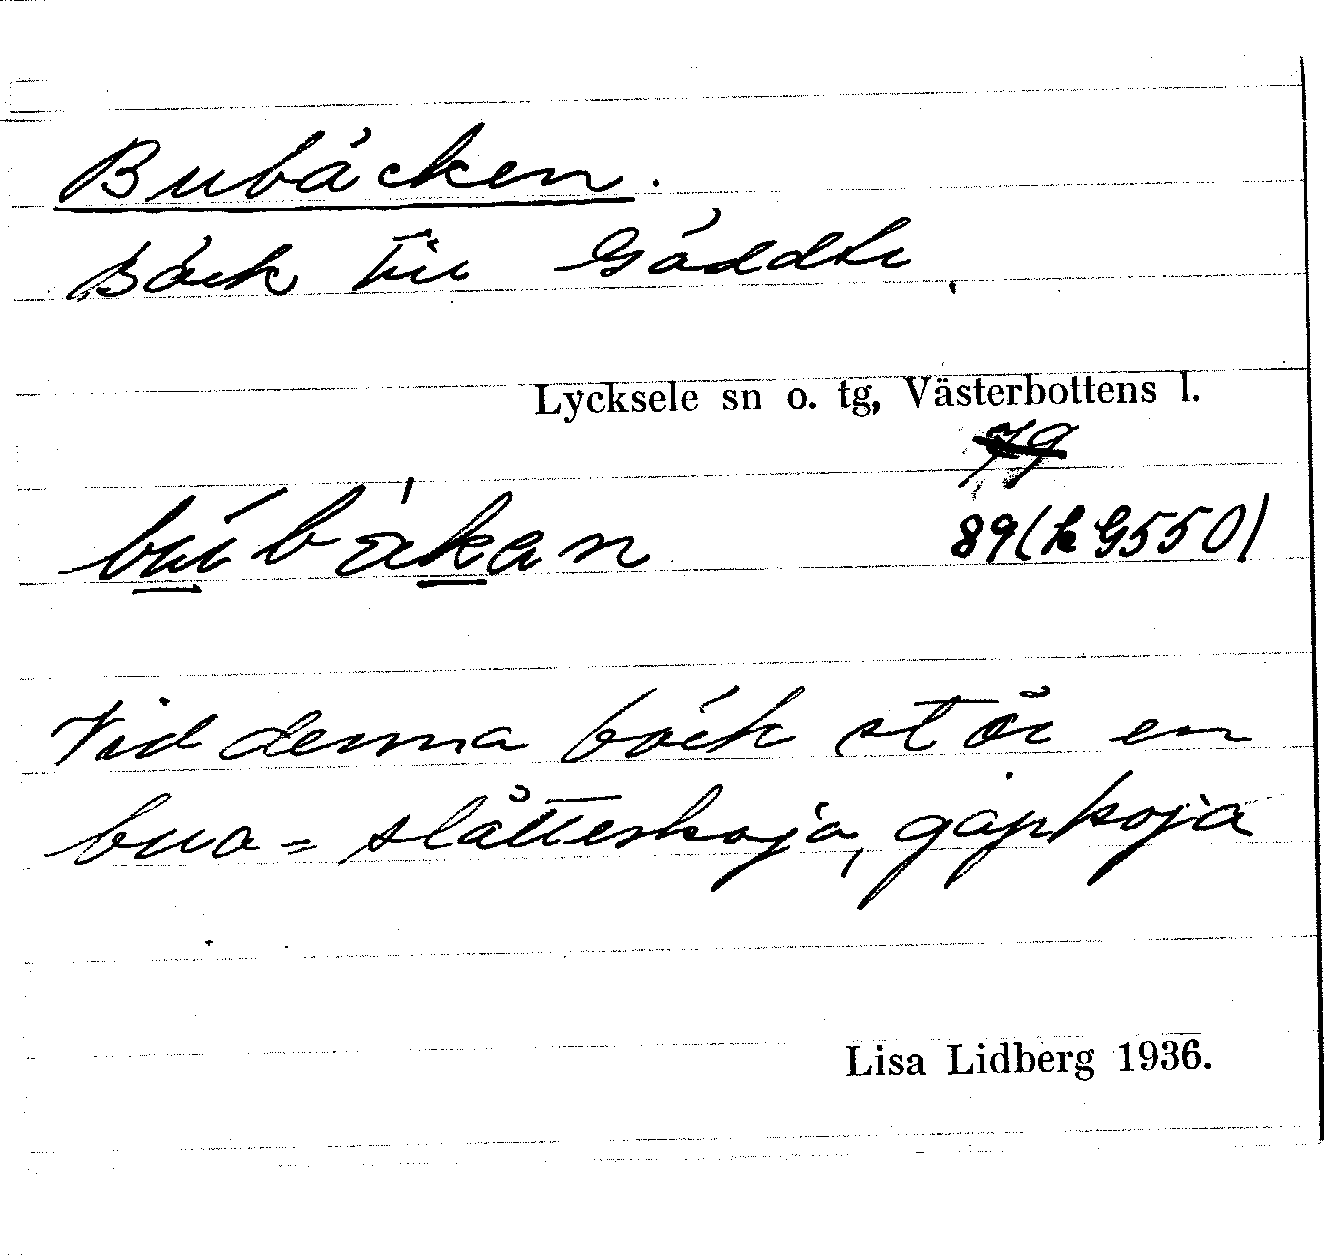 Bubäcken.
Bäck till Gäddtr
Lycksele sn o. tg, Västerbottens l.
79
bu̲bäk̲an
89(k G550)
Vid denna bäck står en
bua = slåtteskoja, gapkoja
Lisa Lidberg 1936.